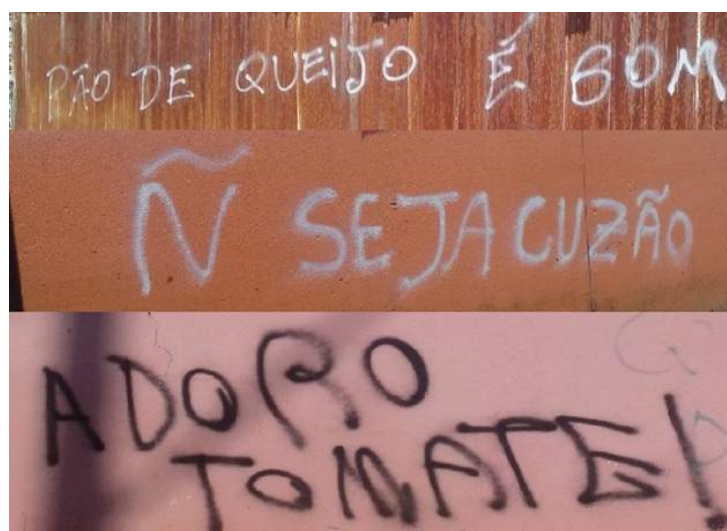 PÃO DE QUEIJO É BOM
Ñ SEJA CUZÃO
ADORO
TOMATE!